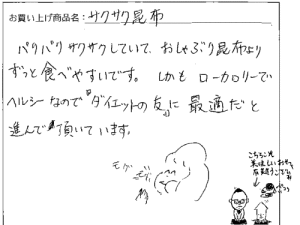 お買い上げ商品名：サクサク昆布
パリパリサクサクしていて、おしゃぶり昆布より
ずっと食べやすいです。しかもローカロリーで
ヘルシーなので『ダイエットの友』に最適だと
進んで頂いています。
モグ
モグ
こちらこそ